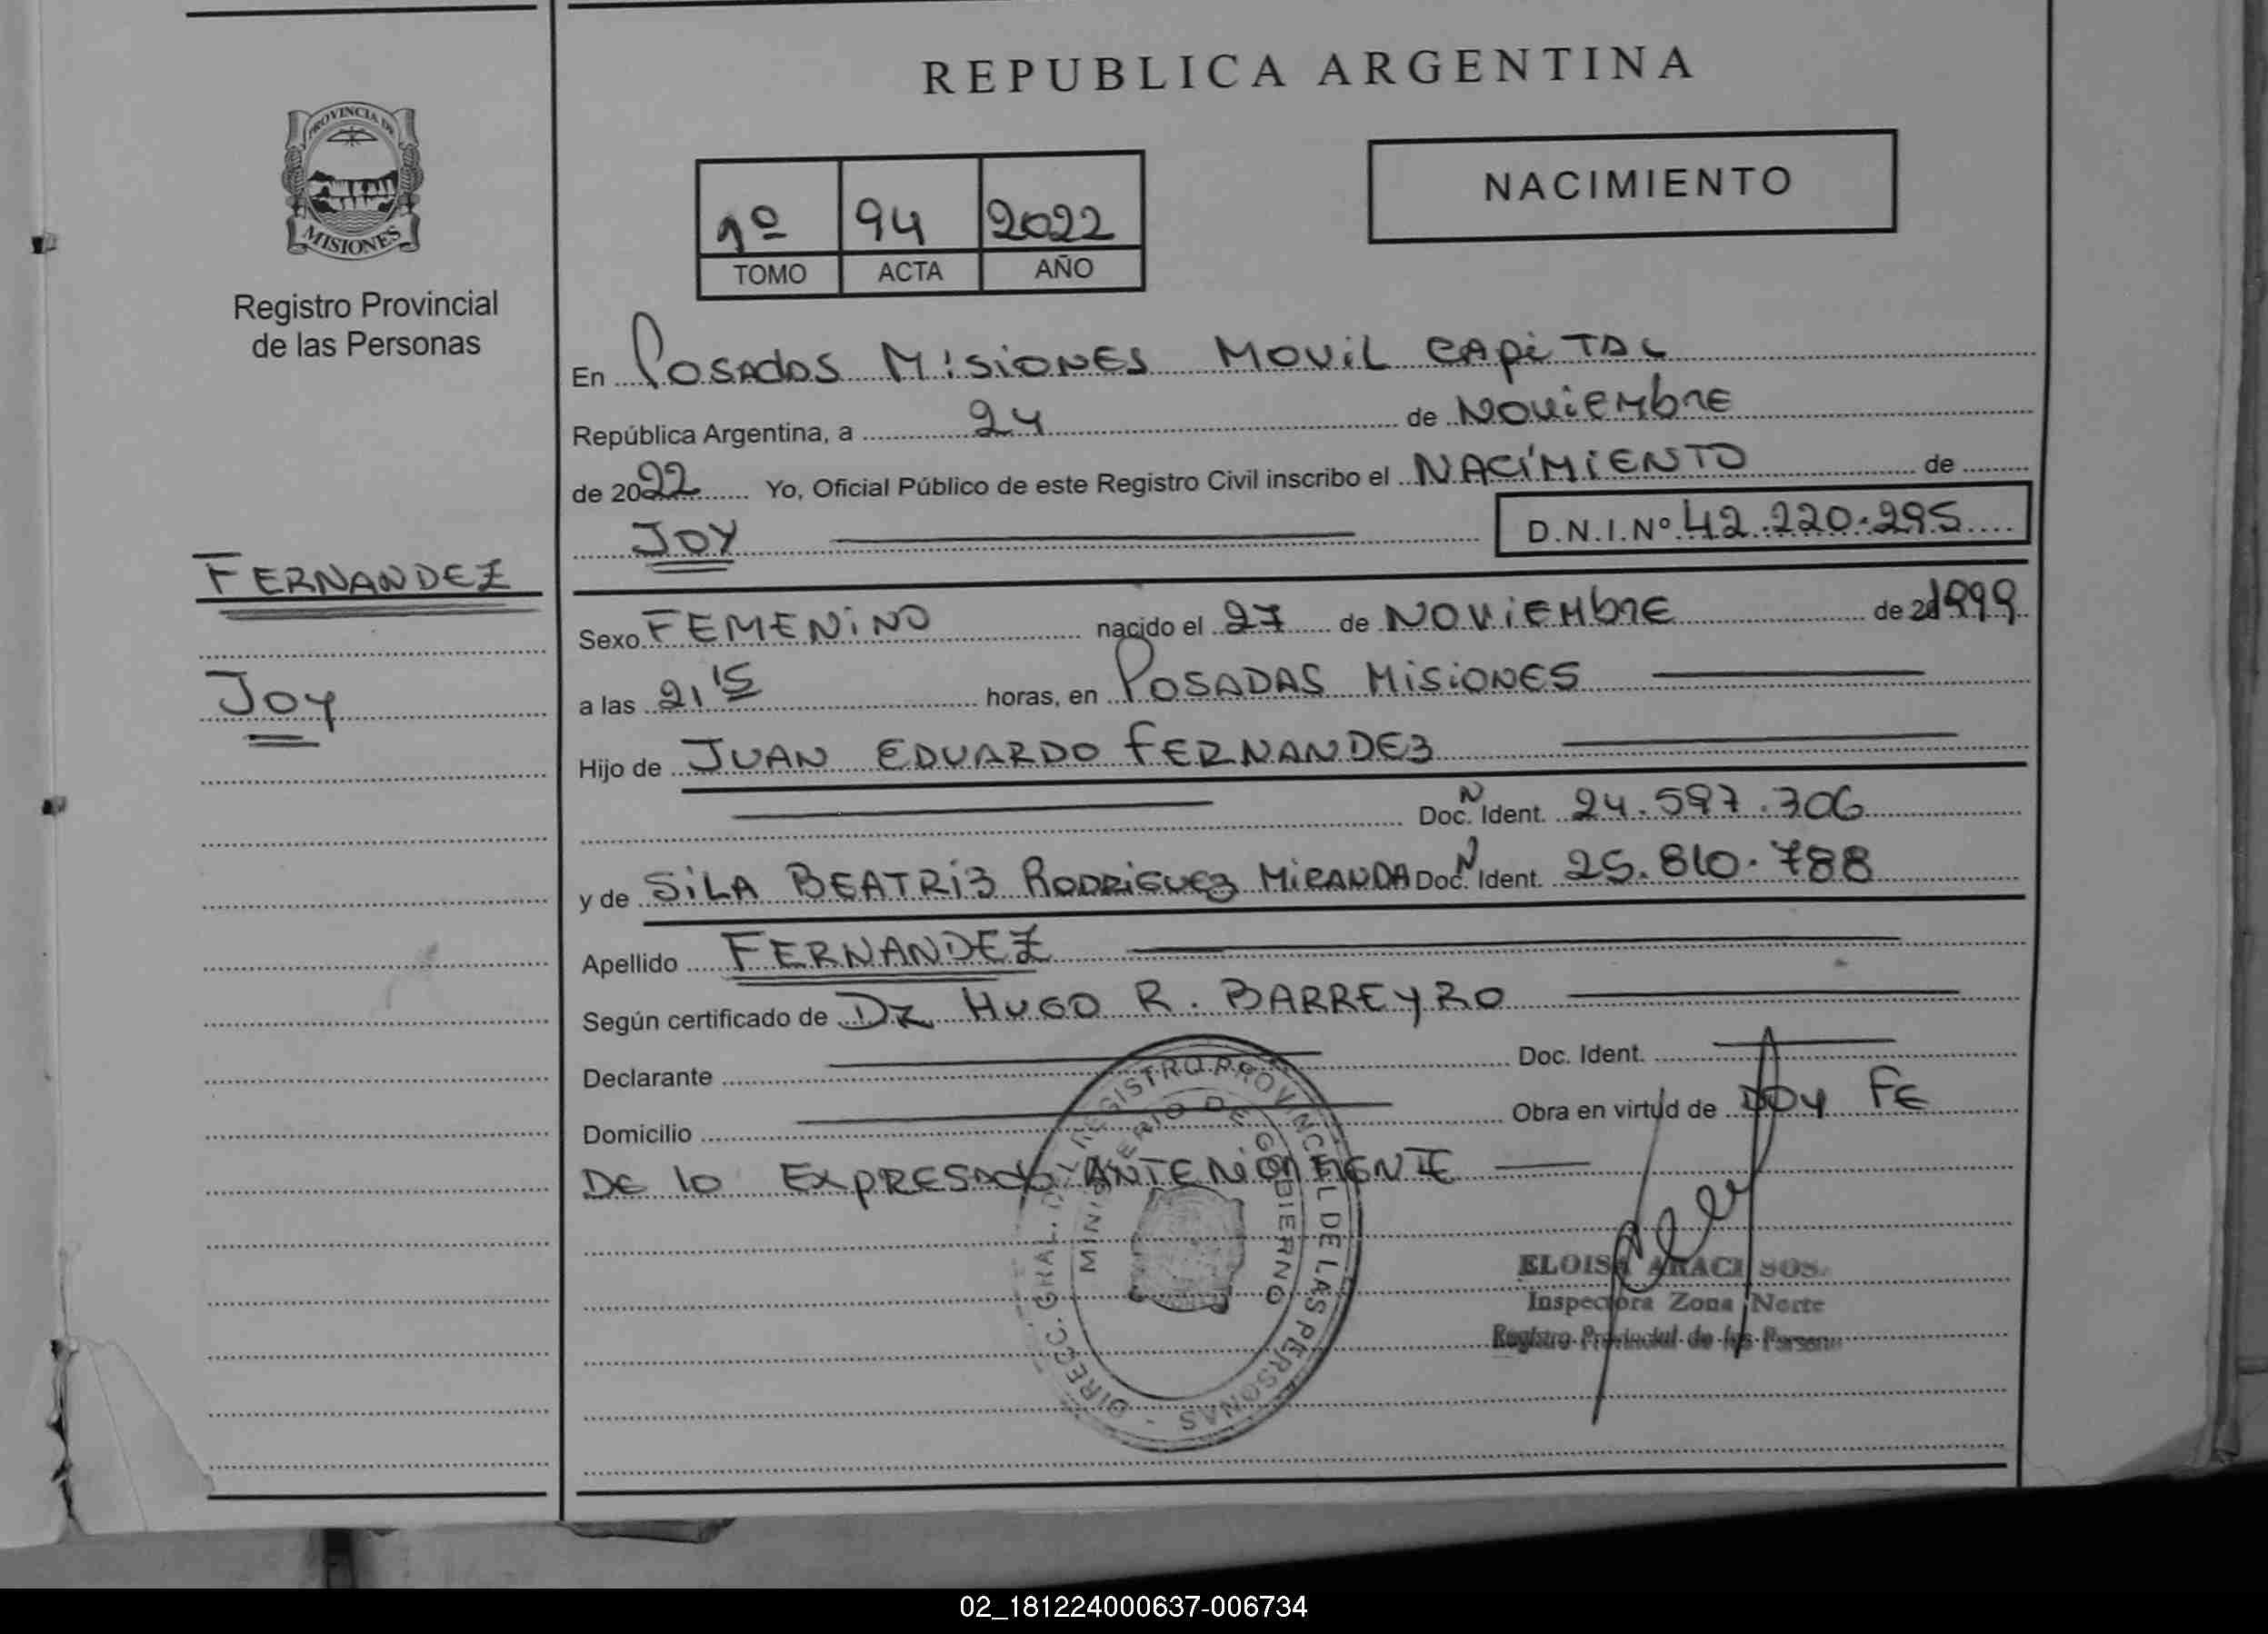 REPUBLICA ARGENTINA
PROVINCIA DE
MISIONES
Registro Provincial
de las Personas
NACIMIENTO
1º 94 2022
TOMO ACTA AÑO
En Posadas Misiones Movil Capital
República Argentina, a 24 de Noviembre
de 2022 Yo, Oficial Público de este Registro Civil inscribo el NACIMIENTO de
JOY D.N.I.Nº 42.220.295
FERNANDEZ
Joy
Sexo FEMENINO nacido el 27 de NOVIEMbRE de 1999
a las 21 15 horas, en POSADAS MISIONES
Hijo de JUAN EDUARDO FERNANDEZ
Doc. N Ident. 24.597.306
y de SILA BEATRIZ RODRIGUEZ MIRANDA Doc. N Ident. 25.810.788
Apellido FERNANDEZ
Según certificado de Dr HUGO R. BARREYRO
Declarante Doc. Ident.
Domicilio Obra en virtud de Doy FE
DE lo EXPRESADO ANTERIORMENTE
DIRECC. GRAL. REGISTRO PROVINCIAL DE LAS PERSONAS
MINISTERIO DE GOBIERNO
ELOISA ARACI SOS
Inspectora Zona Norte
Registro Provincial de las Persona
02_181224000637-006734